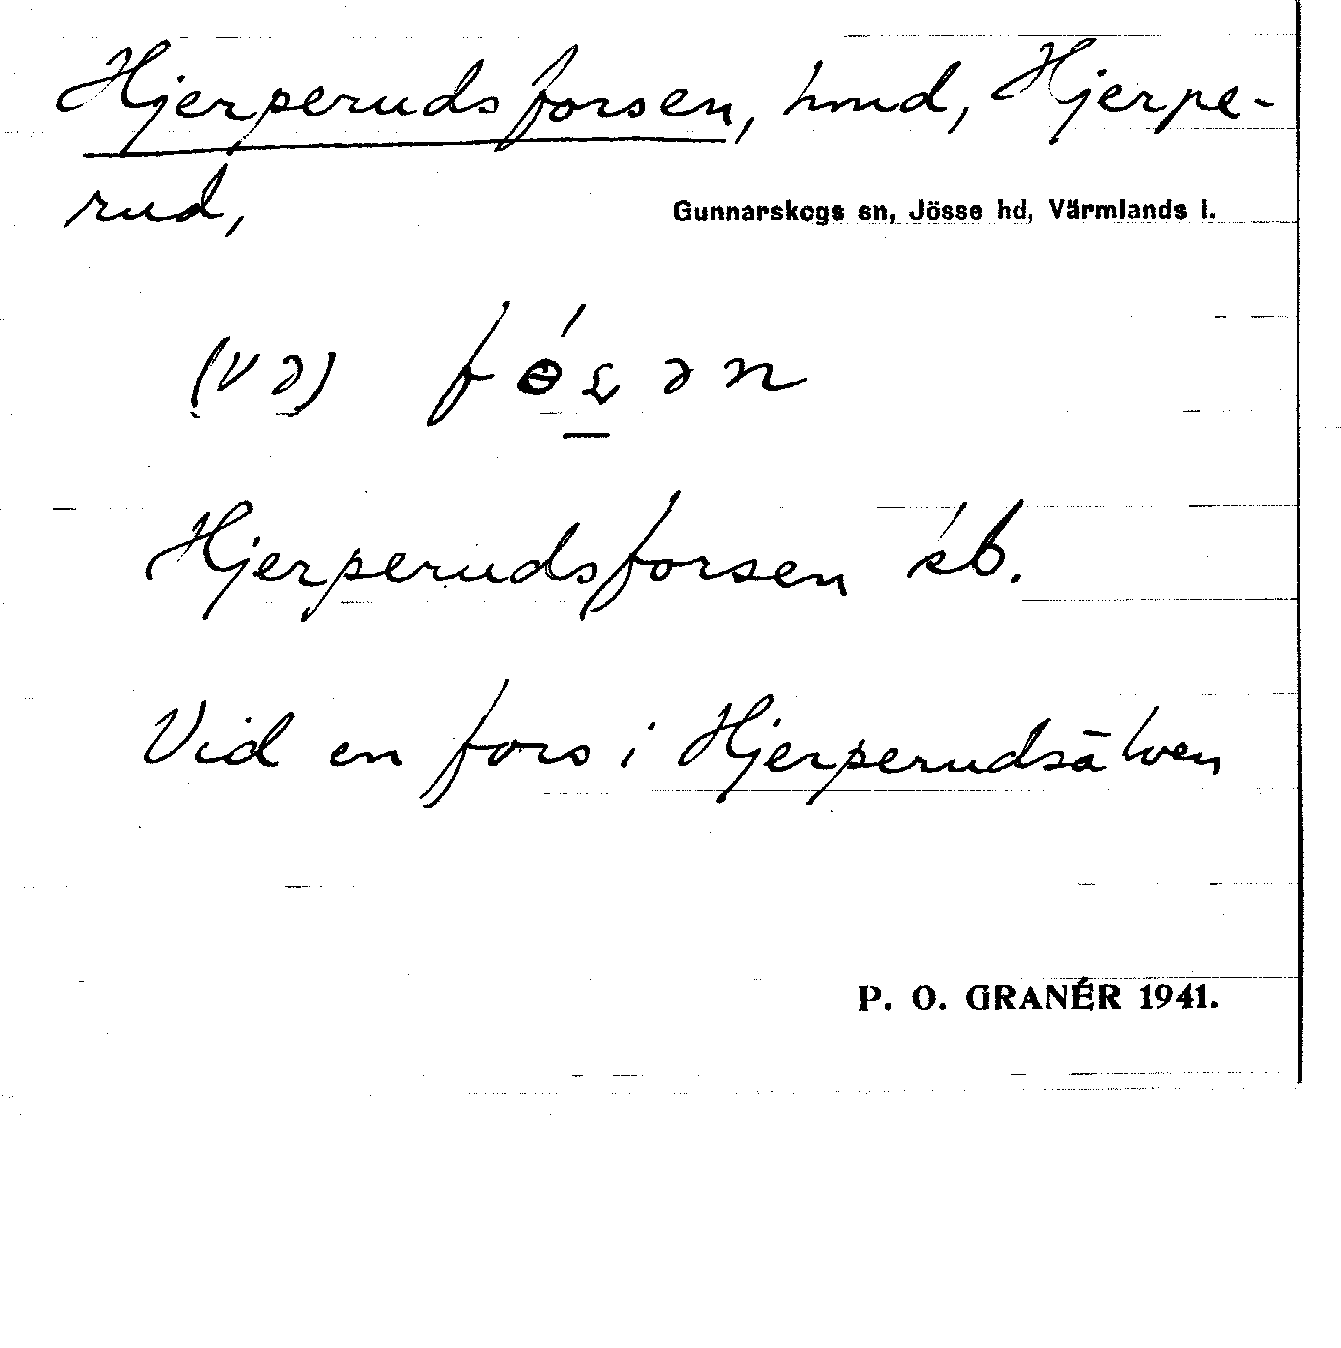 Hjerperudsforsen, hmd, Hjerpe-
rud,
Gunnarskogs sn, Jösse hd, Värmlands l.
(və)
Hjerperudsforsen sb.
Vid en fors i Hjerperudsälven
P. O. GRANÉR 1941.